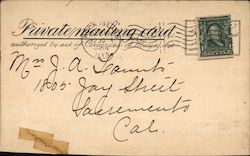 Private mailing card
authorized by act of Congress of May 19, 1898
Mrs J. A.
1805 Jay Street
Sacramento
Cal.